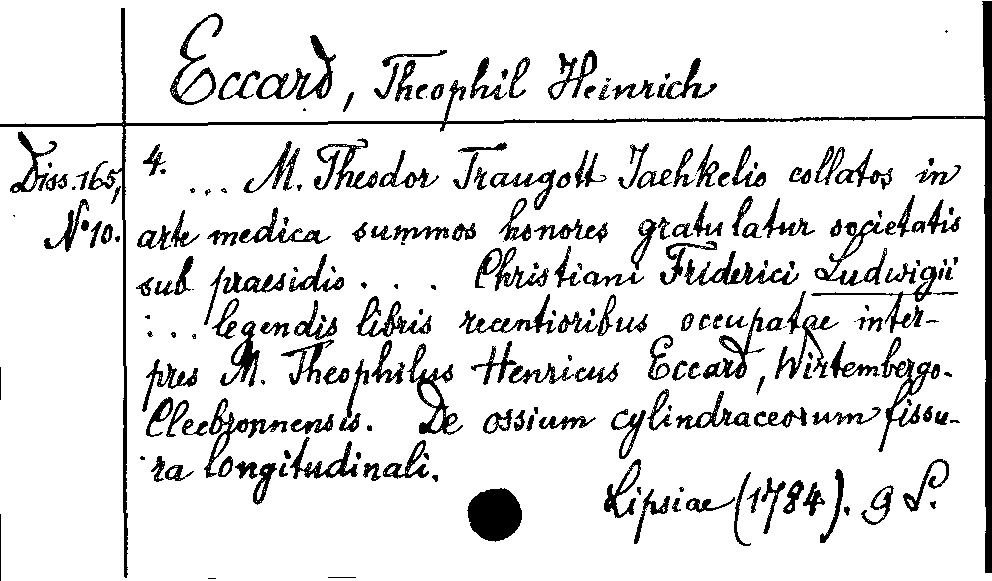 Eccard, Theophil Heinrich
Diss. 165,
No 10.
4. ... M. Theodor Traugott Jaehkelio collatos in
arte medica summos honores gratulatur societatis
sub praesidio . . . Christiani Friderici Ludwigii
... legendis libris recentioribus occupatae inter-
pres M. Theophilus Henricus Eccard, Wirtembergo-
Cleebronnensis. De ossium cylindraceorum fissu-
ra longitudinali.
Lipsiae (1784). 9 S.